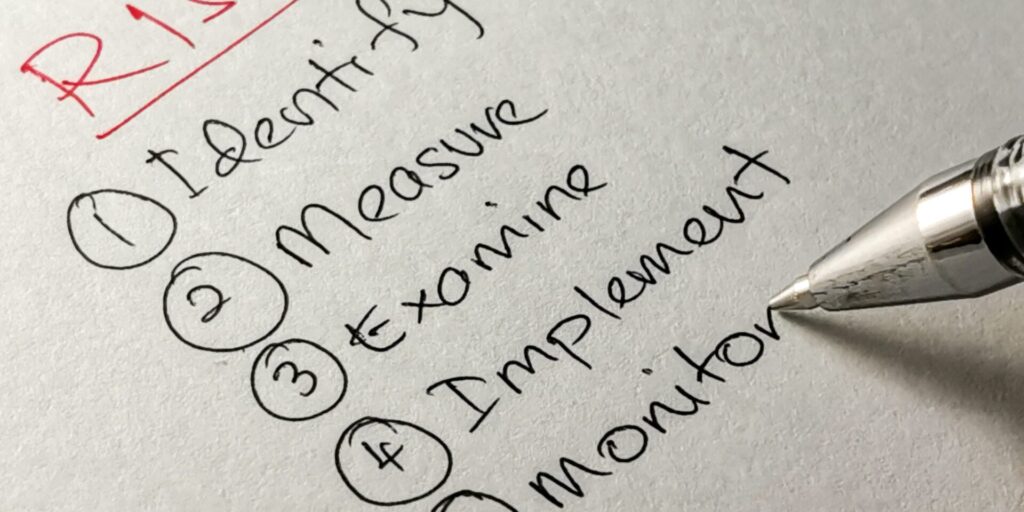 ① Identify
② Measure
③ Examine
④ Implement
monitor